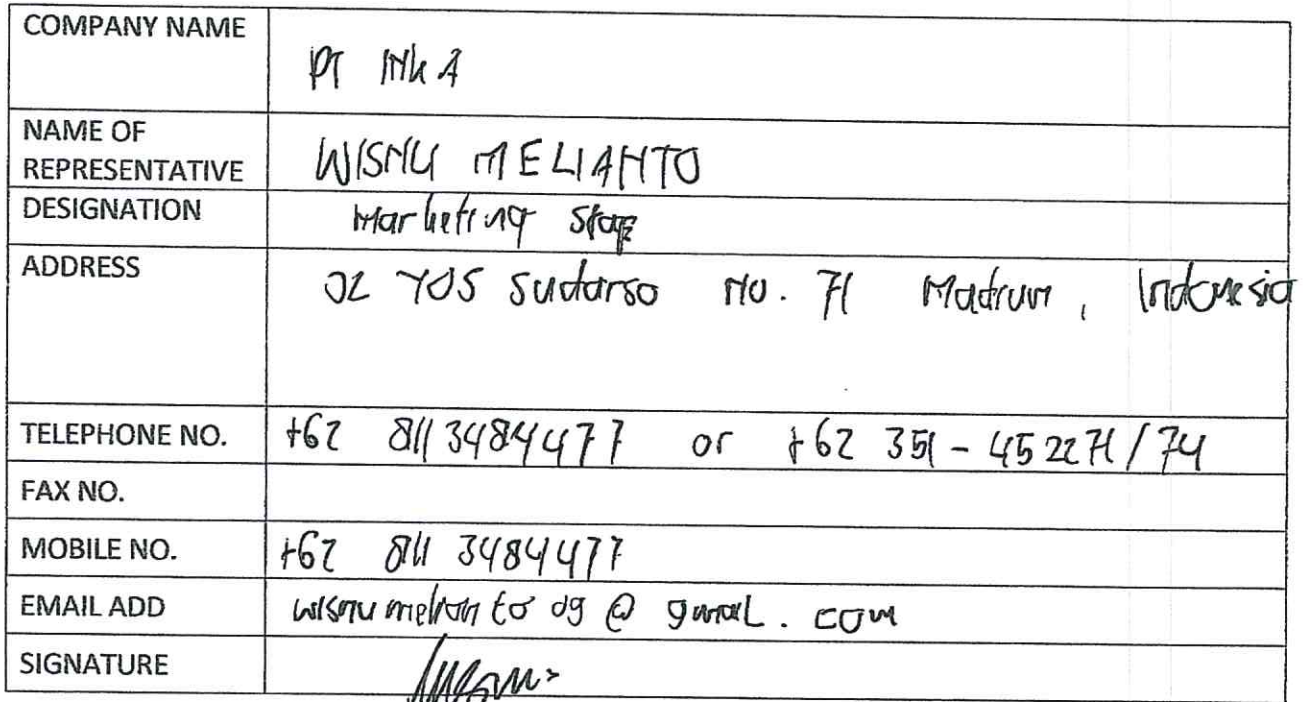 COMPANY NAME
PT INKA
NAME OF
REPRESENTATIVE
WISNU MELIANTO
DESIGNATION
Marketing Staff
ADDRESS
JL YOS Sudarso NO. 71 Madiun, Indonesia
TELEPHONE NO.
+62 811 3484477 or +62 351 - 452271/74
FAX NO.
MOBILE NO.
+62 811 3484477
EMAIL ADD
wisnumelianto09@gmail.com
SIGNATURE